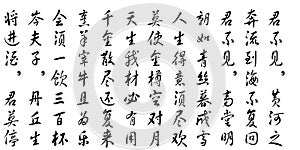 君不见，黄河之
奔流到海不复回
君不见，高堂明
朝如青丝暮成雪
人生得意须尽欢
莫使金樽空对月
天生我材必有用
千金散尽还复来
烹羊宰牛且为乐
会须一饮三百杯
岑夫子，丹丘生
将进酒，君莫停